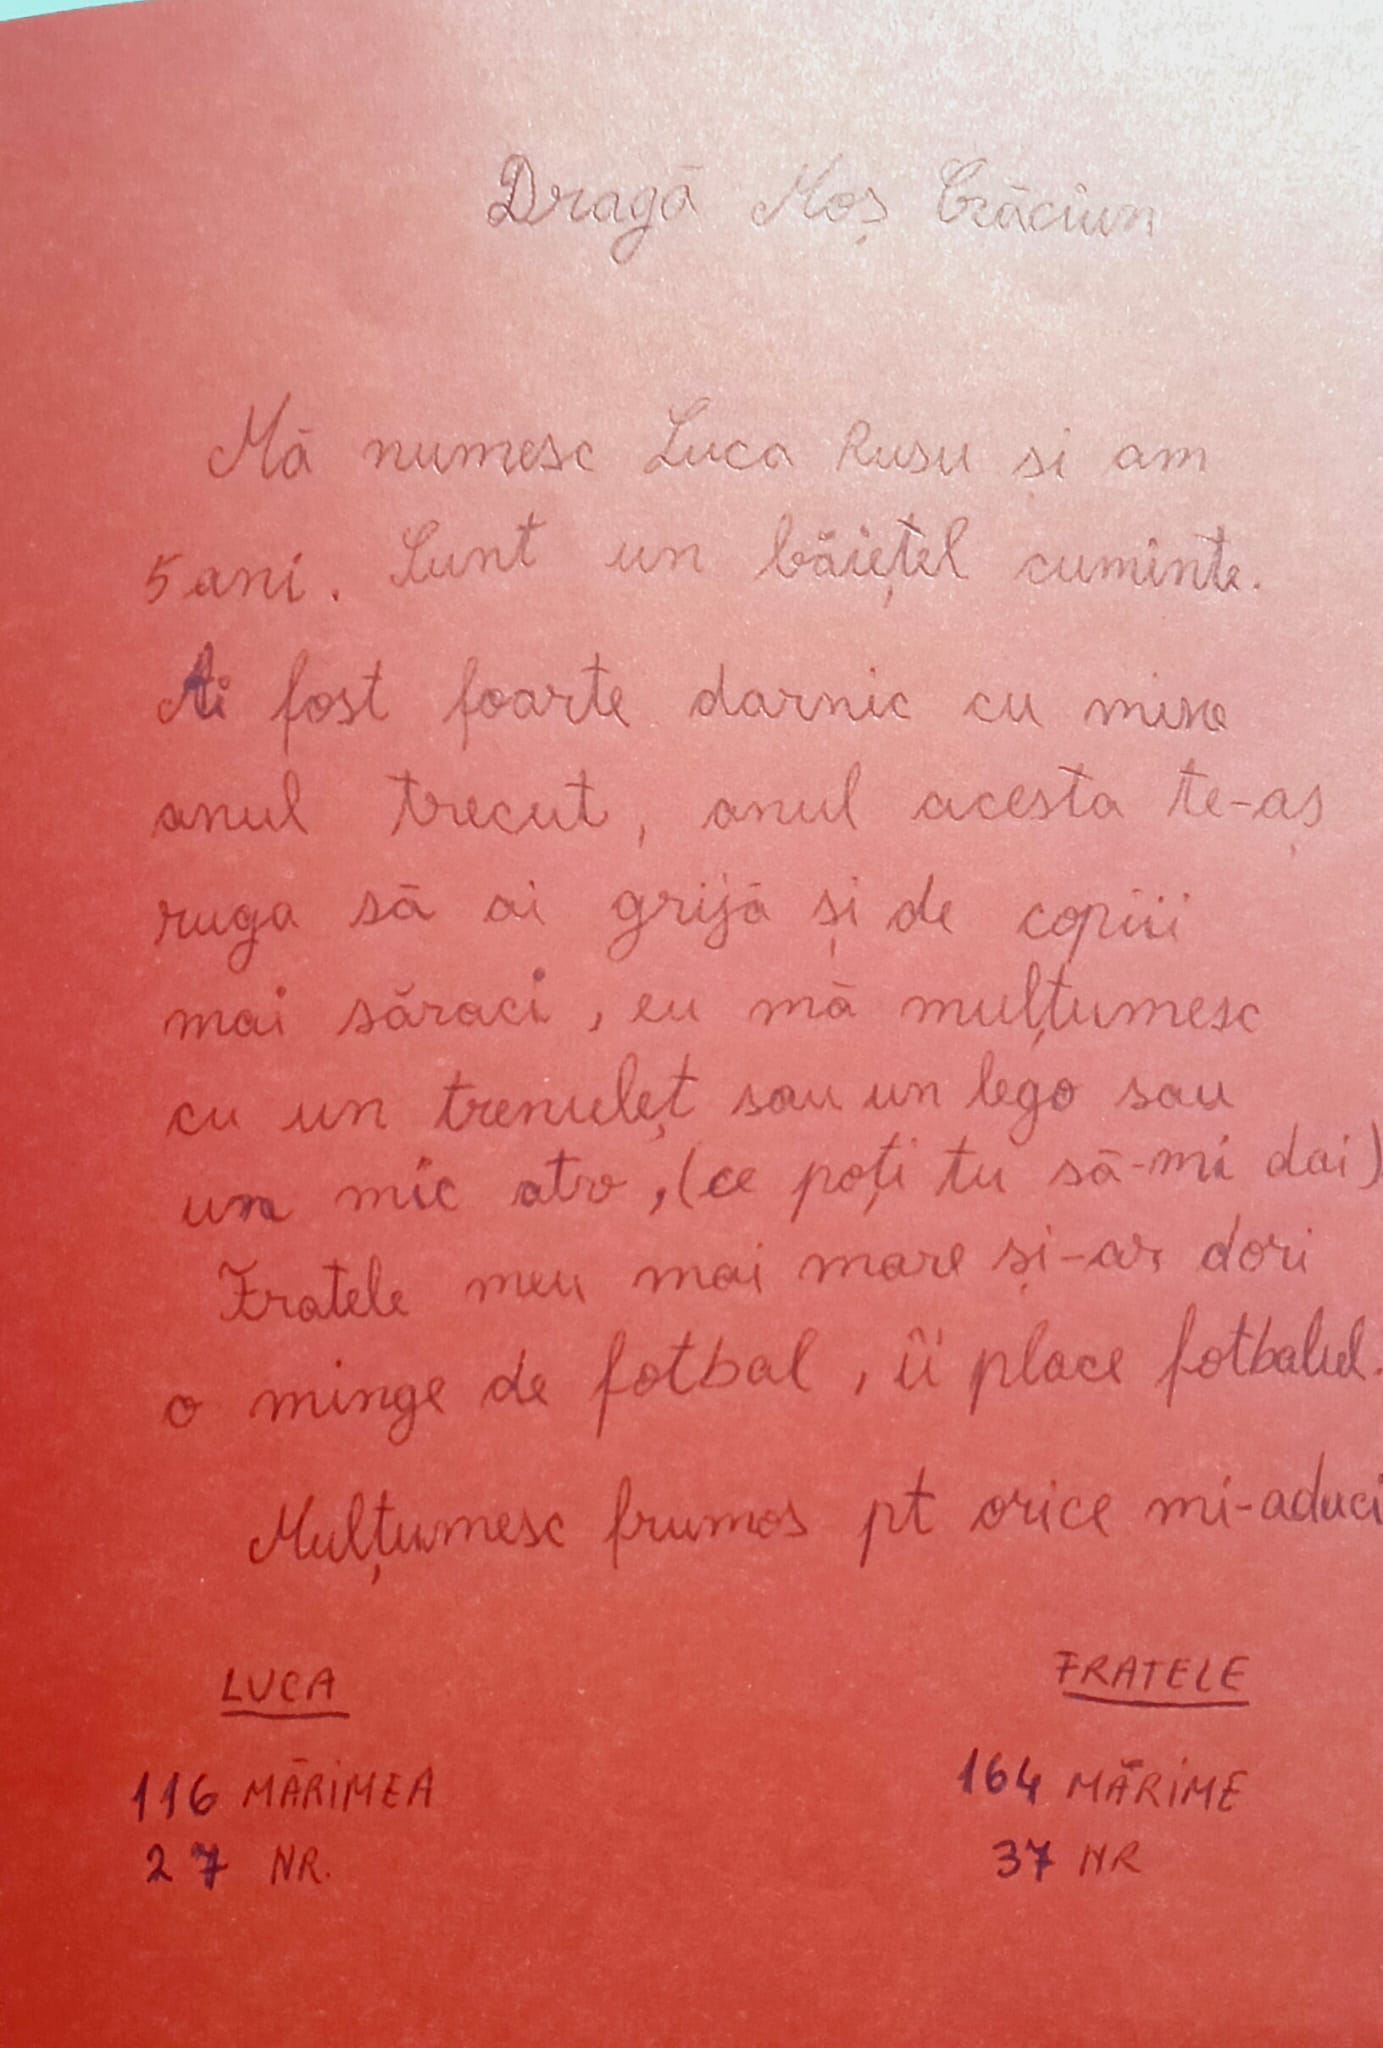 Dragă Moș Crăciun
Mă numesc Luca Rusu și am
5 ani. Sunt un băiețel cuminte.
Ai fost foarte darnic cu mine
anul trecut, anul acesta te-aș
ruga să ai grijă și de copiii
mai săraci, eu mă mulțumesc
cu un trenuleț sau un lego sau
un mic atv, (ce poți tu să-mi dai)
Fratele meu mai mare și-ar dori
o minge de fotbal, îi place fotbalul.
Mulțumesc frumos pt orice mi-aduci
LUCA FRATELE
116 MĂRIMEA 164 MĂRIME
27 NR. 37 NR